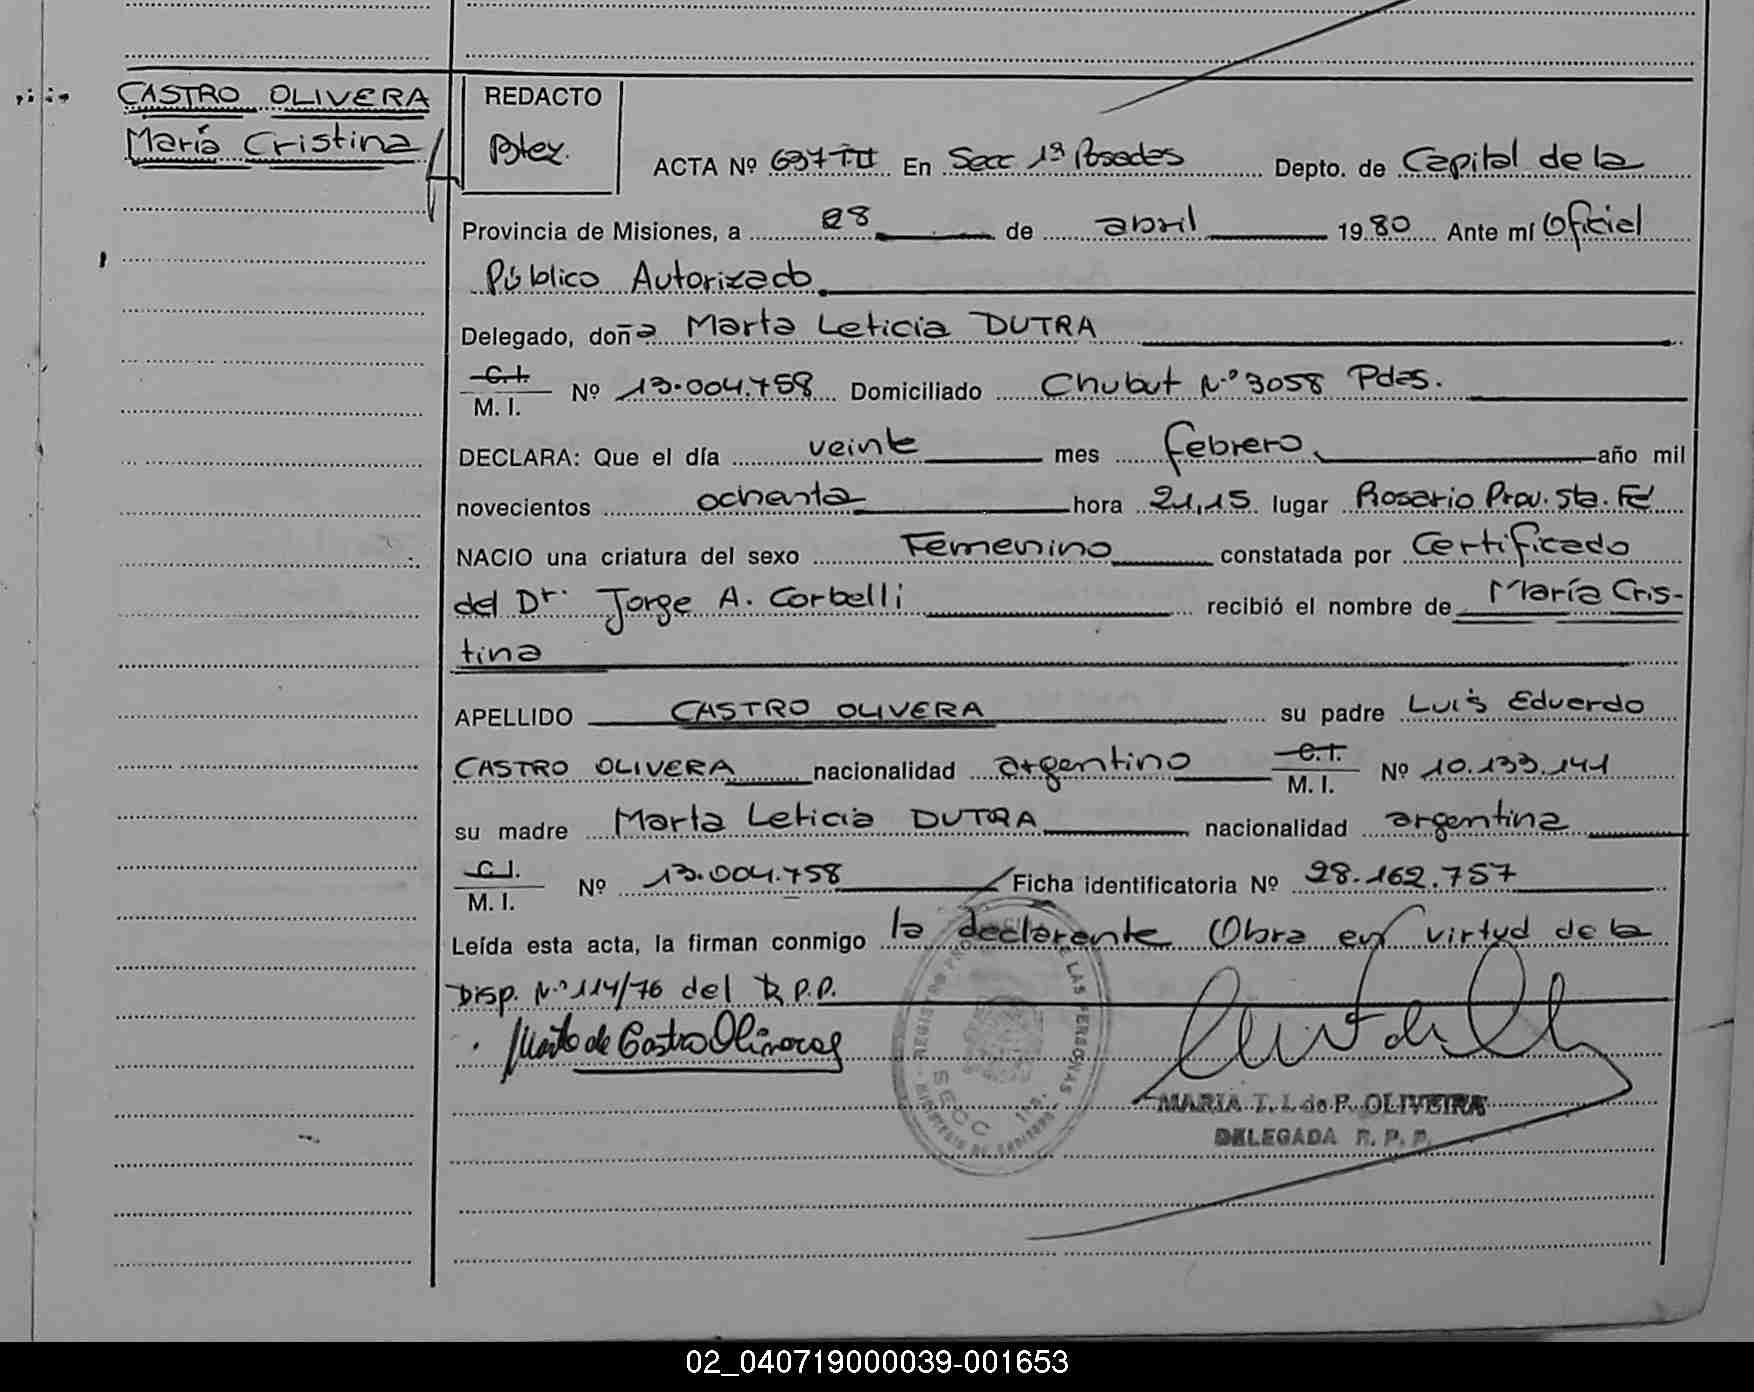 CASTRO OLIVERA
María Cristina
REDACTO
ACTA Nº 637 TII En Secc 1ª Posadas Depto. de Capital de la
Provincia de Misiones, a 28 de abril 1980 Ante mí Oficial
Público Autorizado
Delegado, doña Marta Leticia DUTRA
C.I. / M. I. Nº 13.004.758 Domiciliado Chubut Nº 3058 Pdas.
DECLARA: Que el día veinte mes febrero año mil
novecientos ochenta hora 21,15 lugar Rosario Prov. Sta. Fé
NACIO una criatura del sexo Femenino constatada por Certificado
del Dr. Jorge A. Corbelli recibió el nombre de María Cris-
tina
APELLIDO CASTRO OLIVERA su padre Luis Eduardo
CASTRO OLIVERA nacionalidad argentino C.I. / M. I. Nº 10.133.141
su madre Marta Leticia DUTRA nacionalidad argentina
C.I. / M. I. Nº 13.004.758 Ficha identificatoria Nº 28.162.757
Leída esta acta, la firman conmigo la declarante Obra en virtud de la
Disp. Nº 114/76 del R.P.P.
REGISTRO DE LAS PERSONAS
SECC 1ra.
MARIA T. I. de P. OLIVEIRA
DELEGADA R. P. P.
02_040719000039-001653